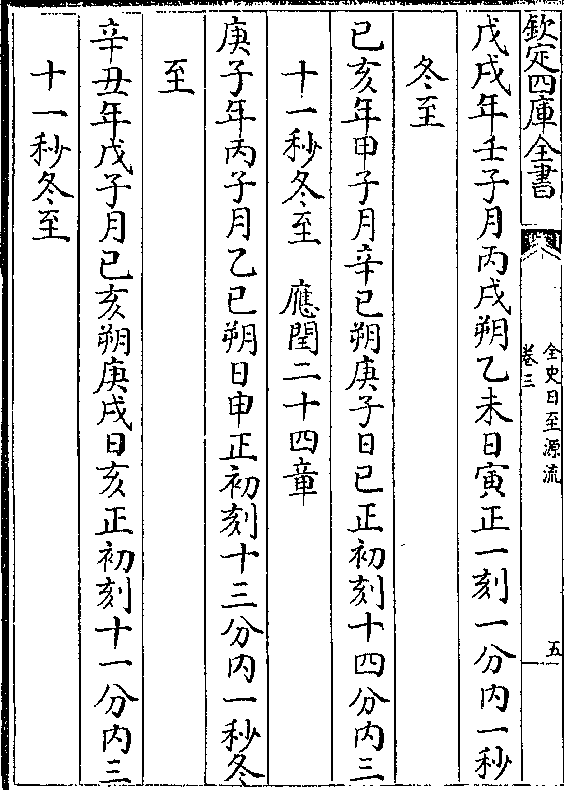 欽定四庫全書
全史日至源流
卷三
五
戊戌年壬子月丙戌朔乙未日寅正一刻一分内一秒
冬至
已亥年甲子月辛已朔庚子日已正初刻十四分内三
十一秒冬至 應閏二十四章
庚子年丙子月乙已朔日申正初刻十三分内一秒冬
至
辛丑年戊子月已亥朔庚戌日亥正初刻十一分内三
十一秒冬至